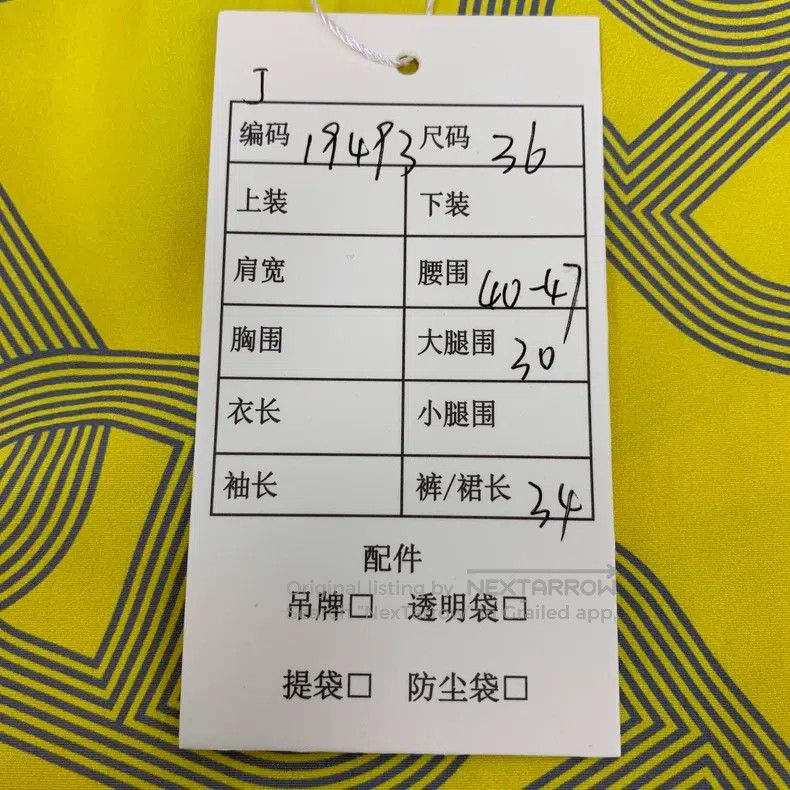 J
编码 19493 尺码 36
上装 下装
肩宽 腰围 40-47
胸围 大腿围 30
衣长 小腿围
袖长 裤/裙长 34
配件
Original listing by NEXTARROW
吊牌□ 透明袋□
Grailed app.
提袋□ 防尘袋□